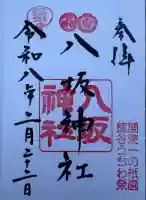 奉拝
関東一の祇園
熊谷うちわ祭
八坂神社
八坂
神社
令和八年